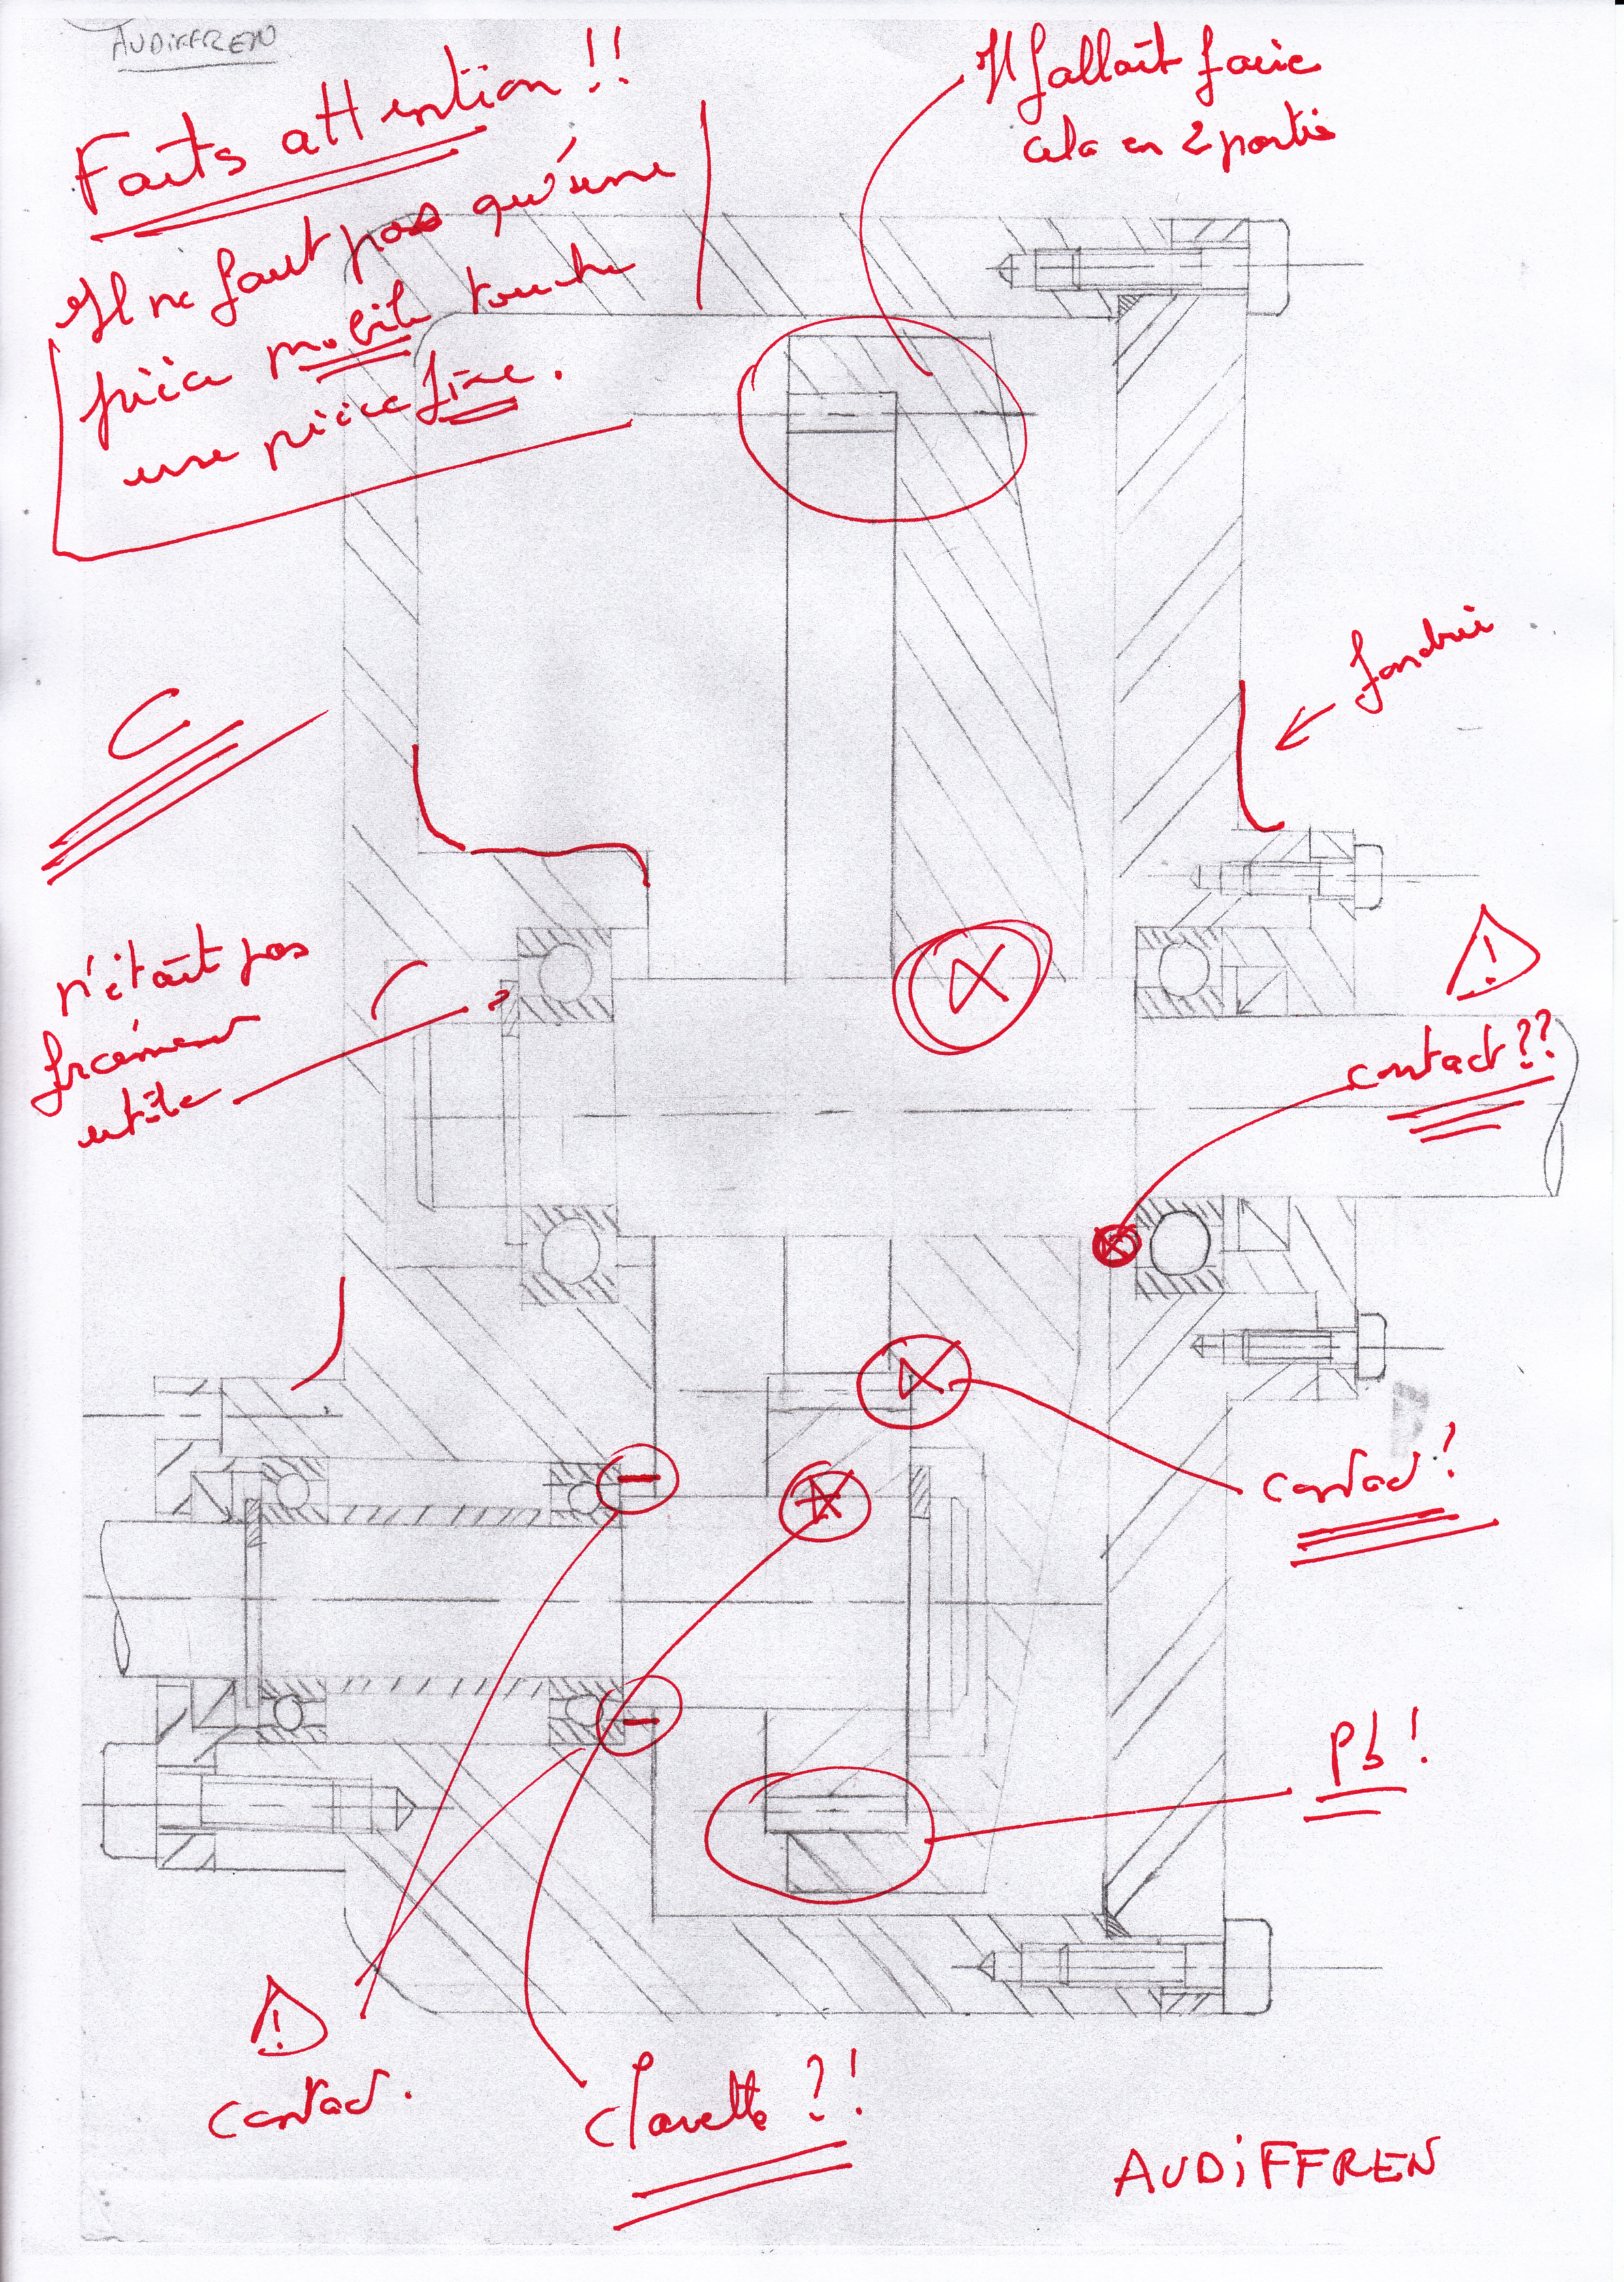 AUDIFFREN
Faits attention !!
Il ne faut pas qu'une
pièce mobile touche
une pièce fixe.
Il fallait faire
cela en 2 partie
fonderie
C
n'était pas
forcément
utile
?
!
contact ??
contact ?
Pb !
!
contact.
Clavette ?!
AUDiFFREN